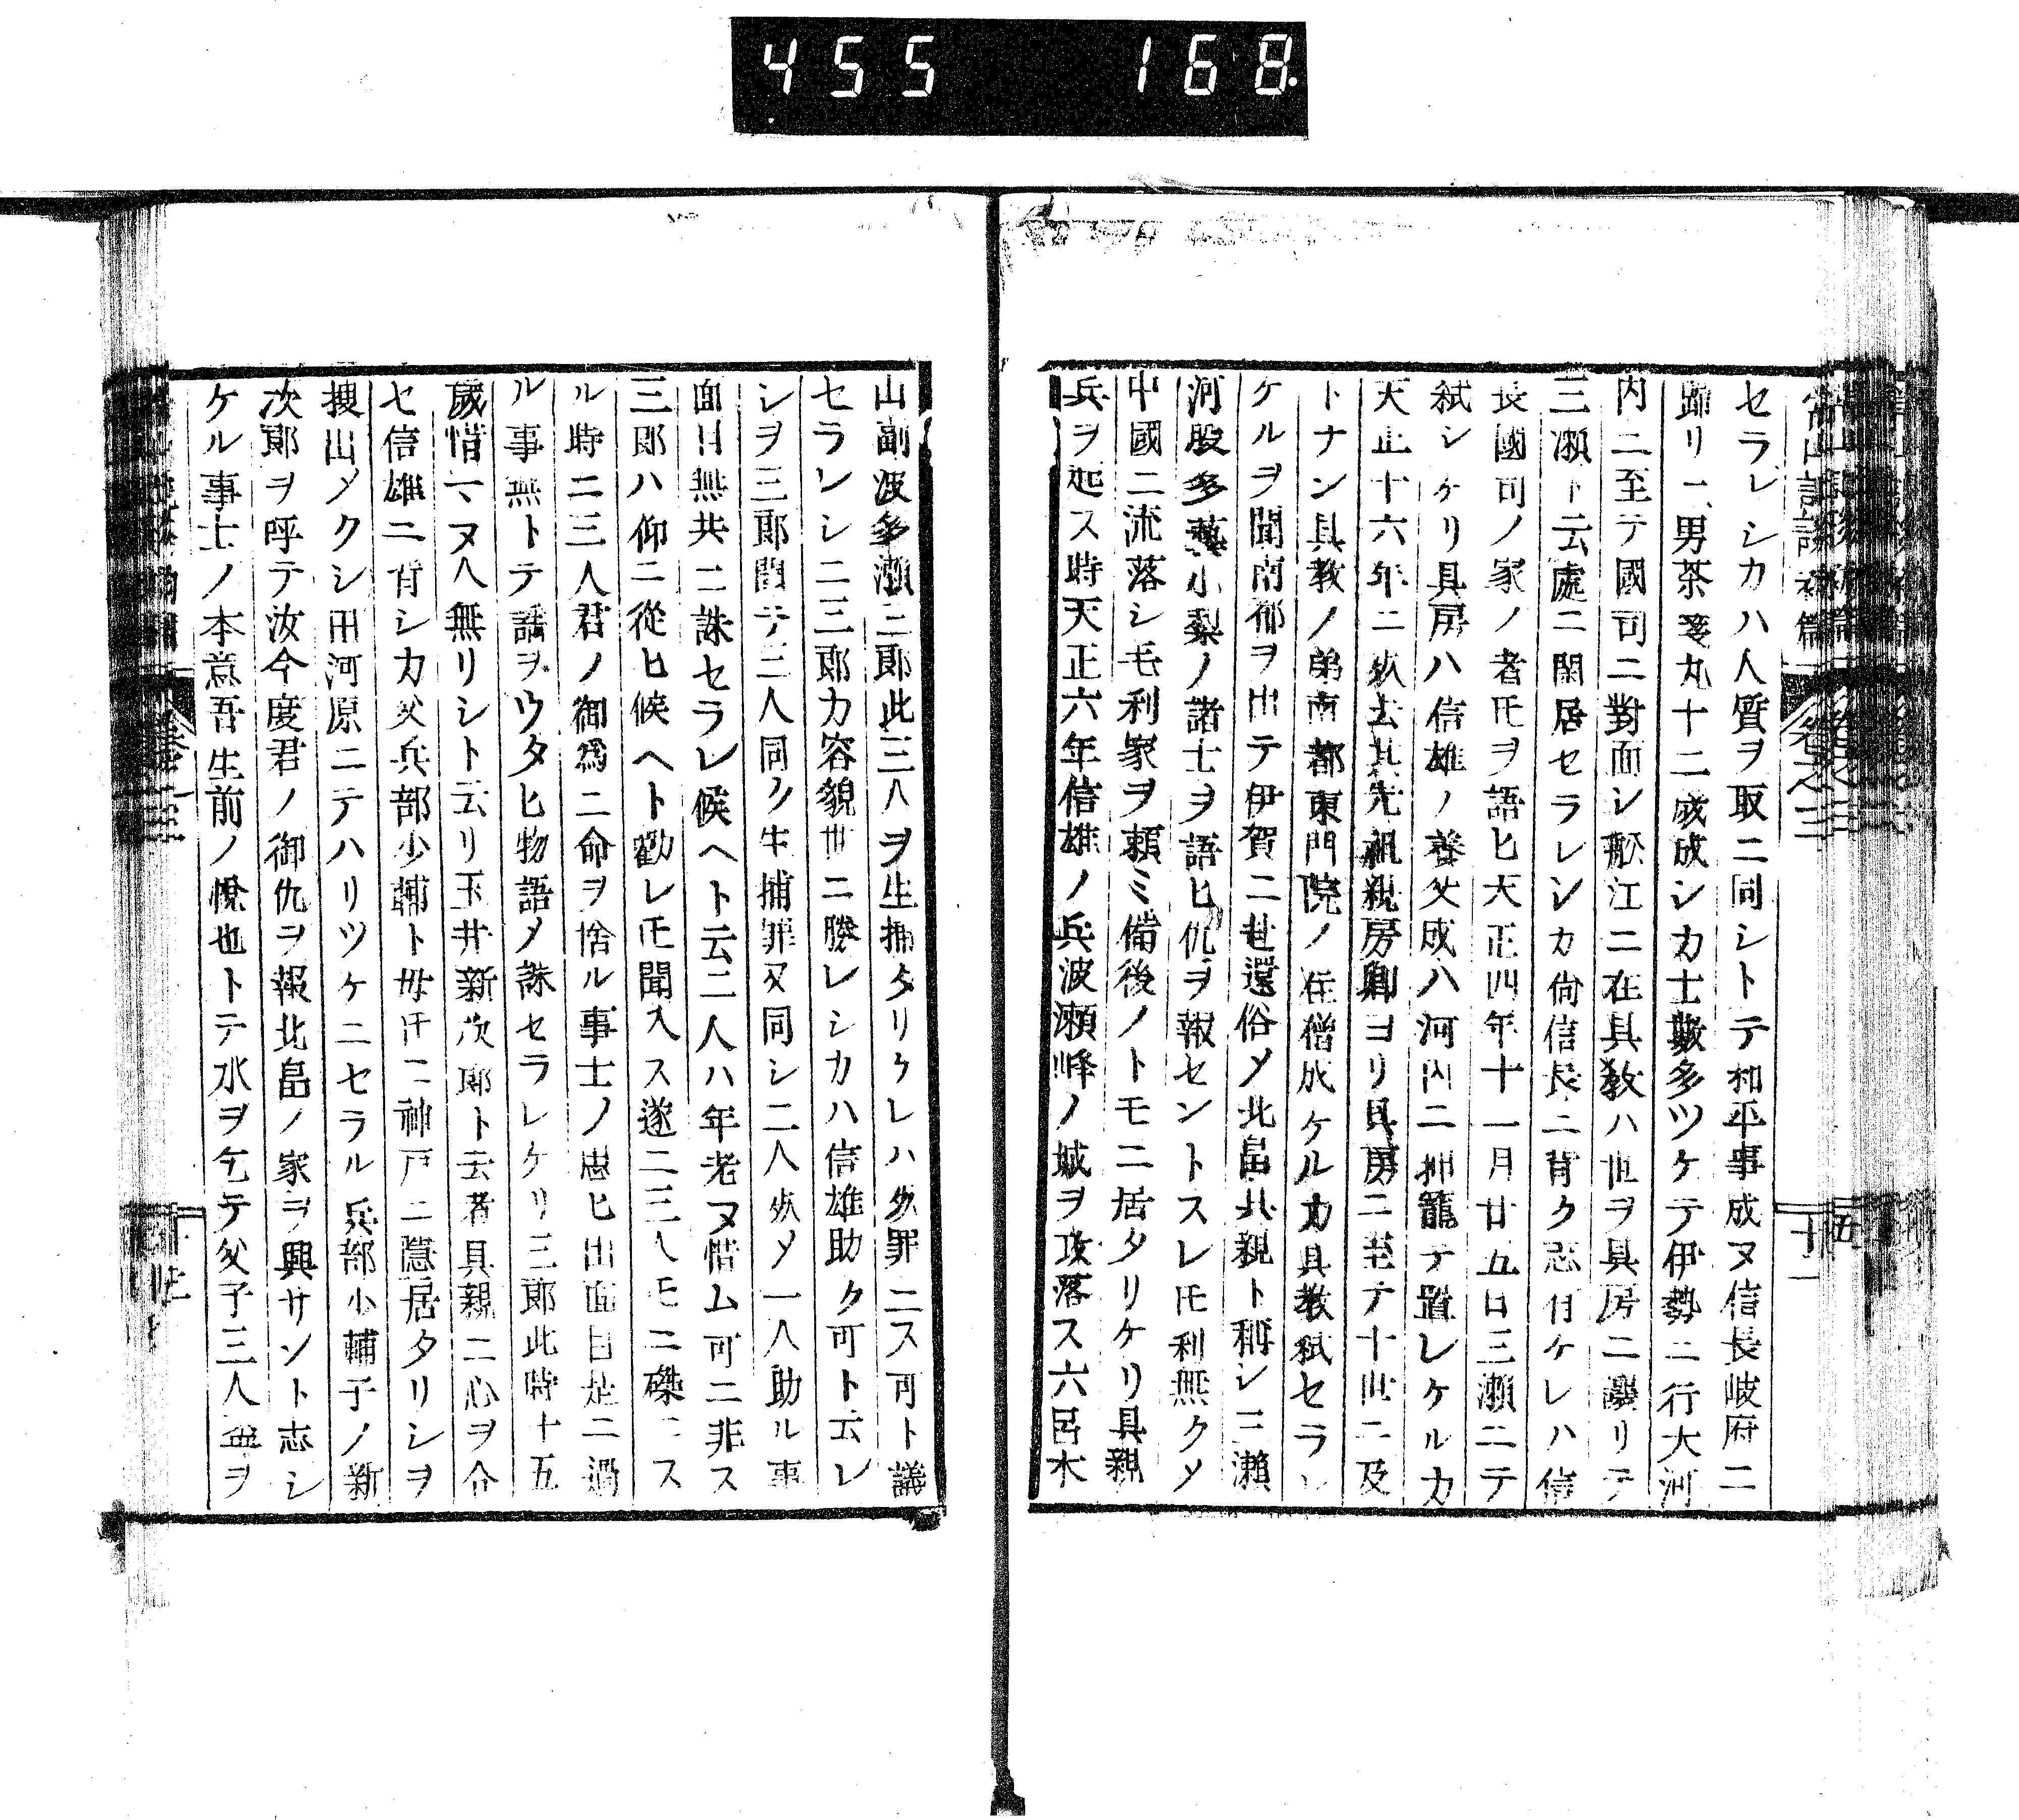 455 168
常山記談補篇 卷之三 十一
セラレシカハ人質ヲ取ニ同シトテ和平事成ヌ信長岐府ニ
歸リ一男茶筌丸十二歳成シカ士數多ツケテ伊勢ニ行大河
内ニ至テ國司ニ對面シ舩江ニ在具教ハ世ヲ具房ニ讓リテ
三瀬ト云處ニ閑居セラレシカ尚信長ニ背ク志有ケレハ信
長國司ノ家ノ者𪜈ヲ語ヒ天正四年十一月廿五日三瀬ニテ
弑シケリ具房ハ信雄ノ養父成ハ河内ニ押籠テ置レケルカ
天正十六年ニ歿去其先祖親房卿ヨリ具房ニ至テ十世ニ及
トナン具教ノ弟南都東門院ノ住僧成ケルカ具教弑セラレ
ケルヲ聞南都ヲ出テ伊賀ニ赴還俗〆北畠具親ト稱シ三瀬
河股多藝小梨ノ諸士ヲ語ヒ仇ヲ報セントスレ𪜈利無ク〆
中國ニ流落シ毛利家ヲ頼ミ備後ノトモニ居タリケリ具親
兵ヲ起ス時天正六年信雄ノ兵波瀬峰ノ城ヲ攻落ス六呂木
山副波多瀬三郎此三人ヲ生捕タリケレハ死罪ニス可ト議
セラレシニ三郎カ容貌世ニ勝レシカハ信雄助ク可ト云レ
シヲ三郎聞テ三人同ク生捕罪又同シ二人死〆一人助ル事
面目無共ニ誅セラレ候ヘト云二人ハ年老ヌ惜ム可ニ非ス
三郎ハ仰ニ從ヒ候ヘト勸レ𪜈聞入ス遂ニ三人𪜈ニ磔ニス
ル時ニ三人君ノ御爲ニ命ヲ捨ル事士ノ思ヒ出面目是ニ過
ル事無トテ謡ヲウタヒ物語〆誅セラレケリ三郎此時十五
歳惜マヌ人無リシト云リ玉井新次郎ト云者具親ニ心ヲ合
セ信雄ニ背シカ父兵部少輔ト母𪜈ニ神戸ニ隱居タリシヲ
搜出〆クシ田河原ニテハリツケニセラル兵部少輔子ノ新
次郎ヲ呼テ汝今度君ノ御仇ヲ報北畠ノ家ヲ興サント志シ
ケル事士ノ本意吾生前ノ悦也トテ水ヲ乞テ父子三人盃ヲ